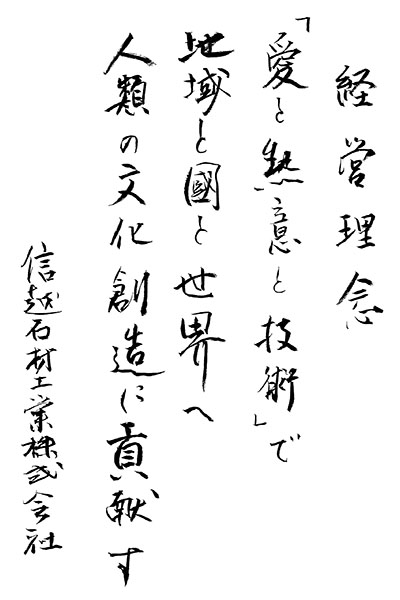 経営理念
「愛と熱意と技術」で
地域と國と世界へ
人類の文化創造に貢献す
信越石材工業株式会社